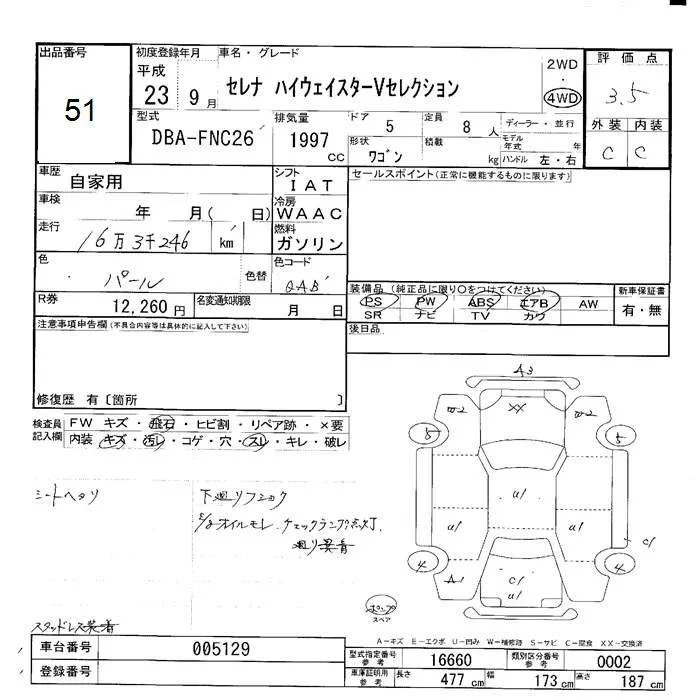 出品番号
51
初度登録年月
平成
23 9月
車名・グレード
セレナ ハイウェイスターVセレクション
2WD
・
4WD
評価点
3.5
型式
DBA-FNC26
排気量
1997
cc
ドア
5
定員
8 人
ディーラー・並行
形状
ワゴン
積載
kg
モデル年式
年
ハンドル 左・右
外装 内装
C C
車歴
自家用
シフト
IAT
セールスポイント(正常に機能するものに限ります)
車検
年 月( 日)
冷房
WAAC
走行
16万3千246 km
燃料
ガソリン
色
パール
色替
色コード
QAB
R券
12,260円
名変通知期限
月 日
装備品(純正品に限り○をつけてください)
PS PW ABS エアB AW
SR ナビ TV カワ
新車保証書
有・無
注意事項申告欄(不具合内容等は具体的に記入して下さい)
後日品
修復歴 有〔箇所 〕
検査員記入欄
FW キズ・飛石・ヒビ割・リペア跡・×要
内装・キズ・汚レ・コゲ・穴・スレ・キレ・破レ
シートヘタリ
下廻りフショク
E/gオイルモレ、チェックランプ点灯、
廻り異音
スタッドレス装着
A3
W2 XX W2
5 5
U1
U1 U1
C1
4 4
A1 C1
U1
ポンプ
スペア
A－キズ E－エクボ U－凹み W－補修跡 S－サビ C－腐食 XX－交換済
車台番号
005129
登録番号
型式指定番号
参考
16660
類別区分番号
参考
0002
車庫証明用
参考
長さ
477 cm
幅
173 cm
高さ
187 cm